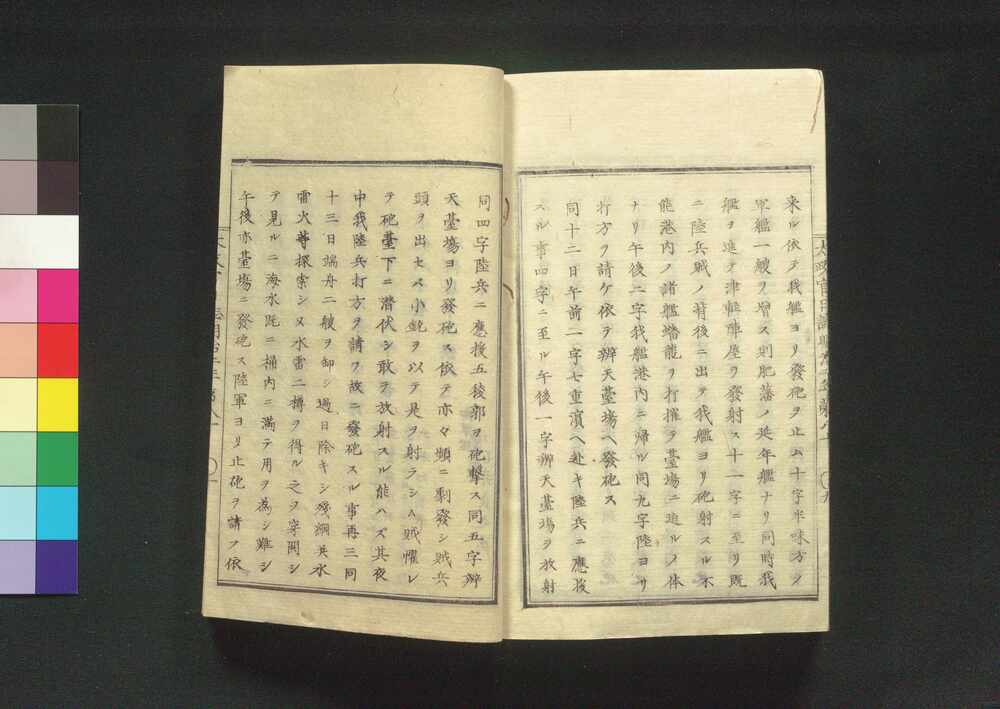 来ル依テ我艦ヨリ發砲ヲ止ム十字半味方ノ
軍艦一艘ヲ増ス則肥藩ノ延年艦ナリ同時我
艦ヲ進テ津軽陣屋ヲ發射ス十一字ニ至リ既
ニ陸兵賊ノ背後ニ出テ我艦ヨリ砲射スル不
能港内ノ諸艦蟠龍ヲ打摧ラ臺場ニ迫ルノ体
ナリ午後二字我艦港内ニ帰ル同九字陸ヨリ
打方ヲ請ケ依テ辨天臺場ヘ發砲ス
同十二日午前二字七重濱ヘ赴キ陸兵ニ應援
スル事四字ニ至ル午後一字辨天臺場ヲ放射
同四字陸兵ニ應援五稜郭ヲ砲擊ス同五字辨
天臺塲ヨリ發砲ス依テ亦々頻ニ劇發シ賊兵
頭ヲ出セバ小銃ヲ以テ是ヲ射ラシム賊懼レ
テ砲臺下ニ潜伏シ敢テ放射スル能ハズ其夜
中我陸兵打方ヲ請フ故ニ發砲スル事再三同
十三日端舟二艘ヲ卸シ過日除キシ殘綱其水
雷火等探索シ又水雷二樽ヲ得ル之ヲ穿開シ
テ見ルニ海水既ニ桶内ニ満テ用ヲ為シ難シ
午後亦臺塲ニ發砲ス陸軍ヨリ止砲ヲ請フ依